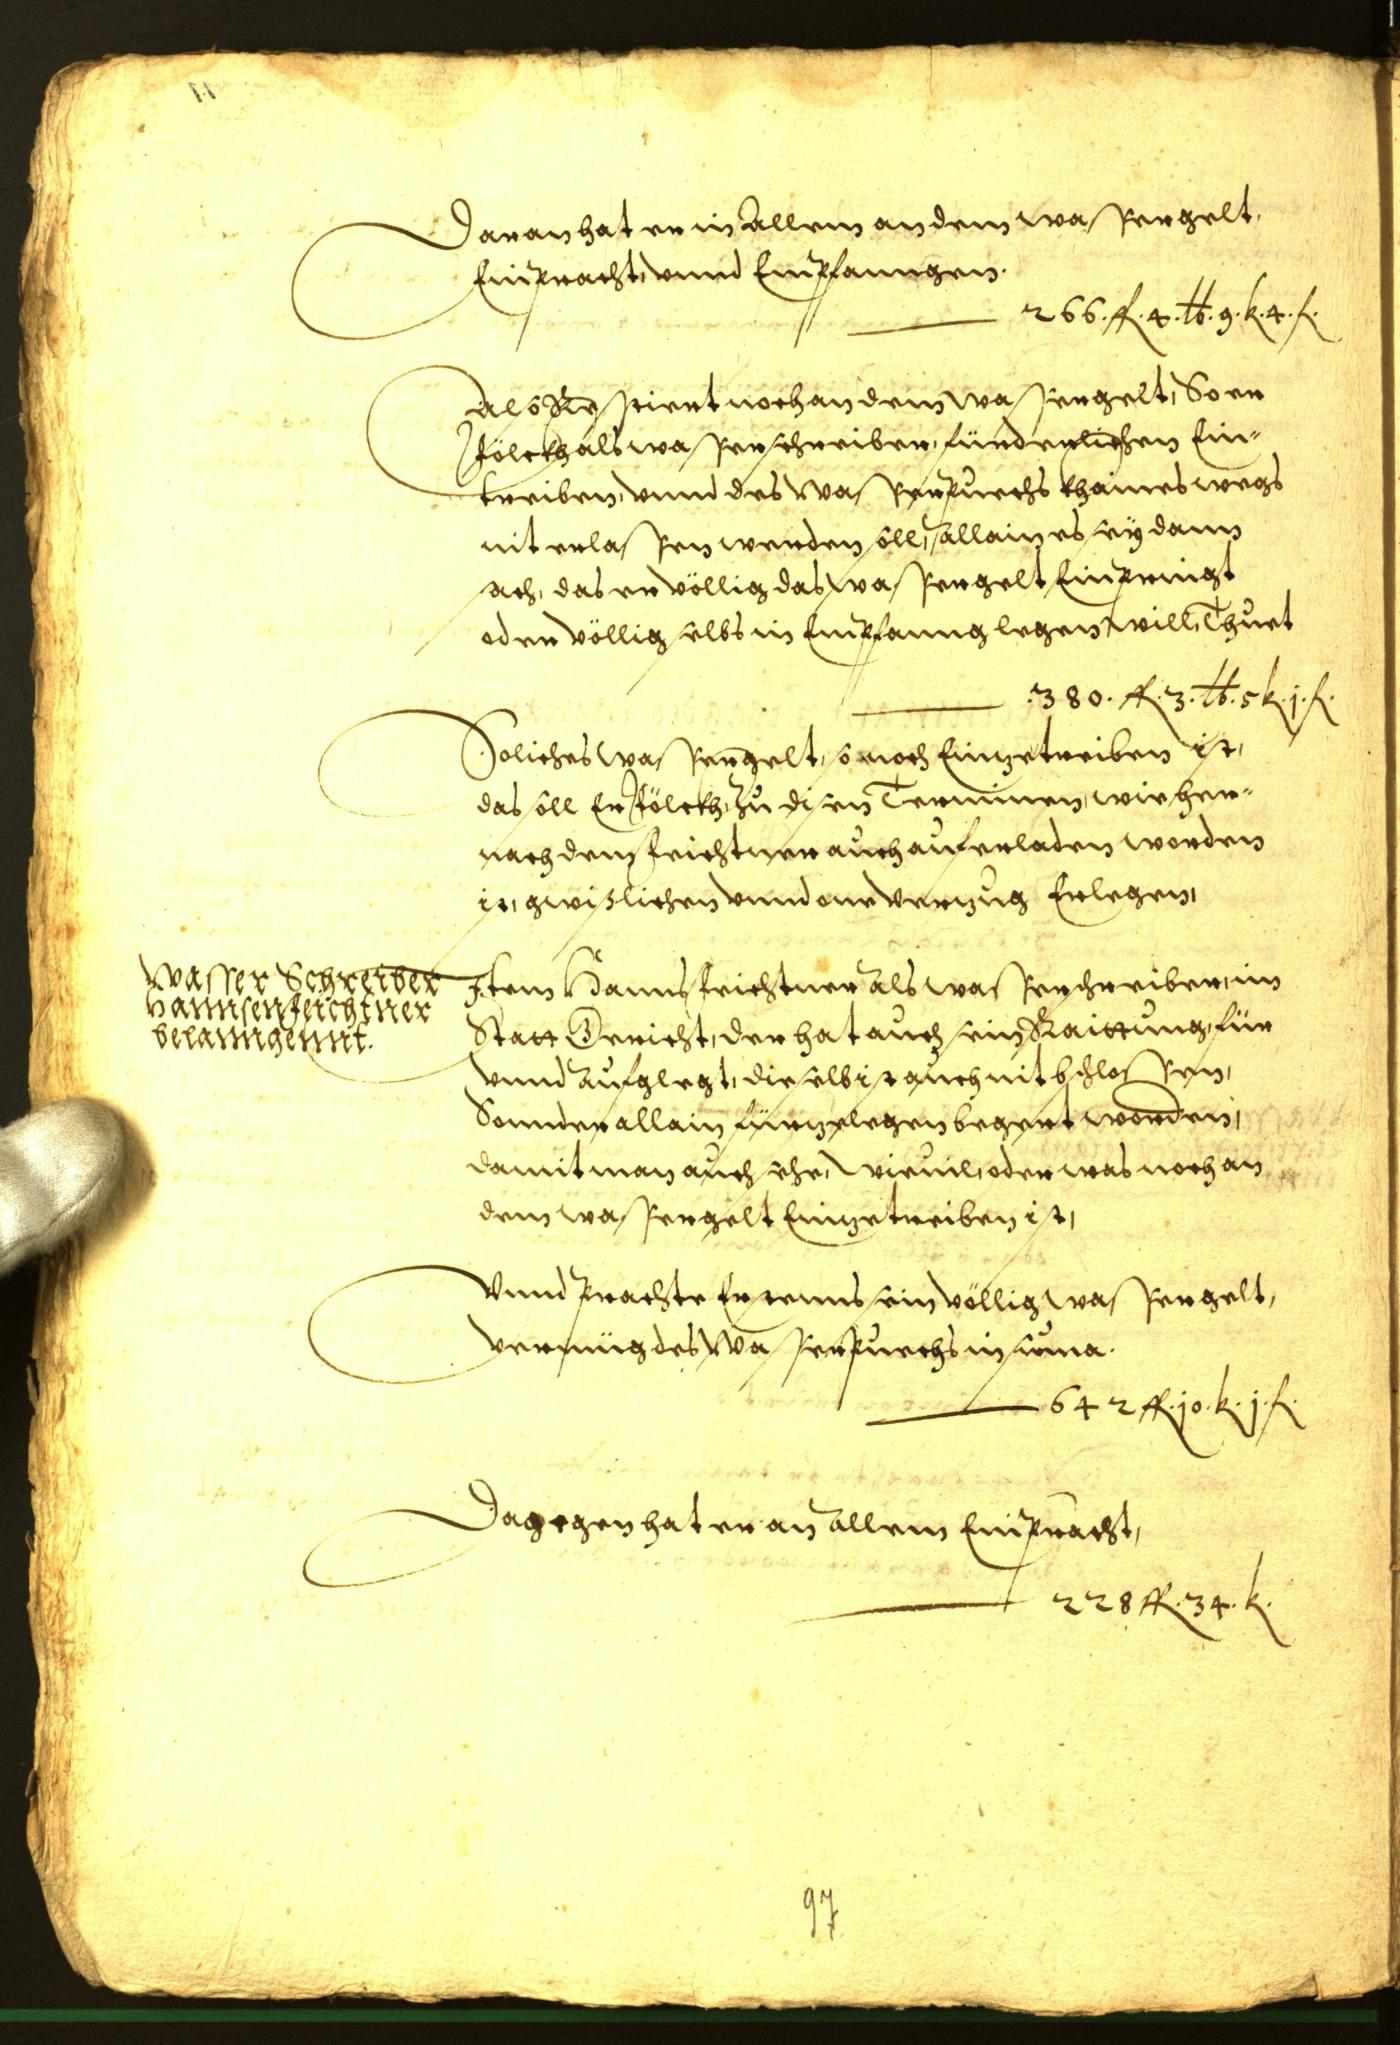 Daran hat er in Allem an dem wassergelt,
Einpracht, vnnd Empfanngen.
266. fl. 4. lb. 9. k. 4. f.
Also Restiert noch an dem wassergelt, So er
Jölckh als wasserschreiber, fürderlichen Ein-
treiben, vnnd des Wasserpuechs khaines wegs
nit erlassen werden soll, allain es sey dann
sach, das er völlig das wassergelt Einpringt
oder völlig selbs in Empfanng legen will, Thuet
.380. fl. 3. lb. 5 k. j. f.
Soliches wassergelt, so noch Einzetreiben ist,
das soll Er Jölckh, Zu disen Terminen, wie her-
nach dem feichtner auch auferladen worden
ist, gwißlichen vnnd one verzug Erlegen,
Wasser Schreiber
Hannsen feichtner
belanngennt.
Item Hanns feichtner als wasserschreiber, im
Statt Gericht, der hat auch sein Raittung, für
vnnd aufglegt, dieselb ist auch nit bschlossen,
Sonnder allain fürzelegen begert worden,
damit man auch sehe, wieuil, oder was noch an
dem wassergelt Einzetreiben ist,
Vnnd prachte Erstenns sein völlig wassergelt,
vermüg des Wasserpuechs in suma.
642 fl. 10. k. j. f.
Dagegen hat er an allem Einpracht,
228 fl. 34. k.
97